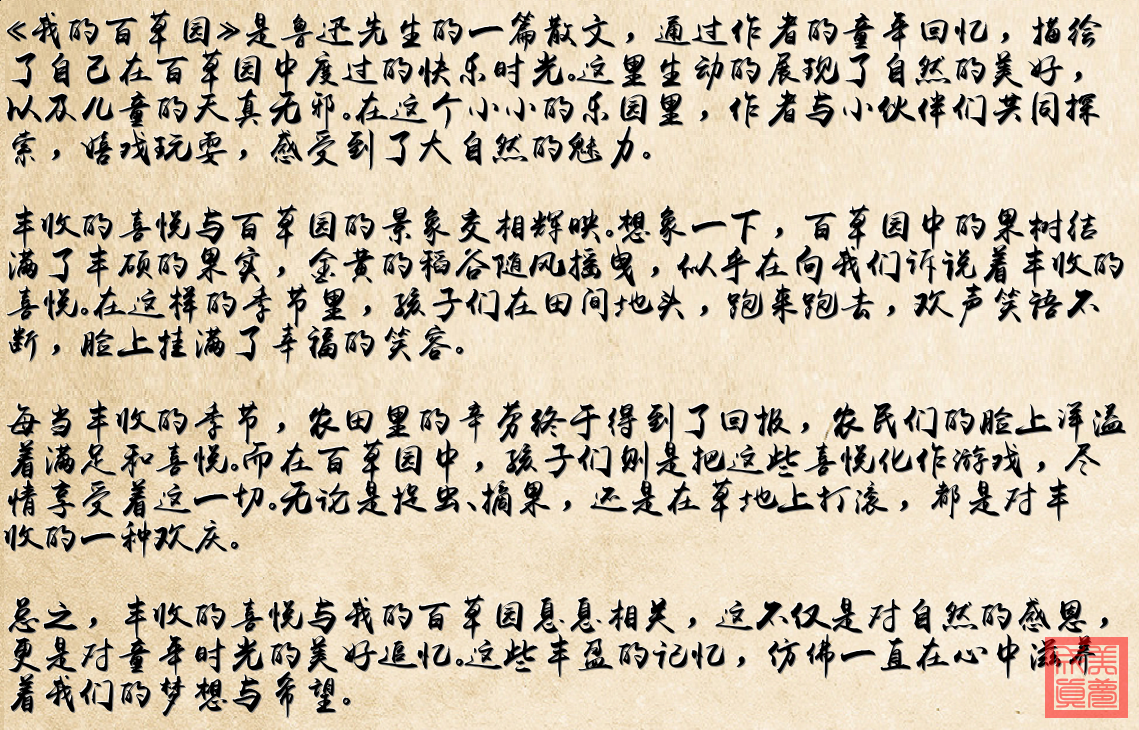 《我的百草园》是鲁迅先生的一篇散文，通过作者的童年回忆，描绘
了自己在百草园中度过的快乐时光。这里生动的展现了自然的美好，
以及儿童的天真无邪。在这个小小的乐园里，作者与小伙伴们共同探
索，嬉戏玩耍，感受到了大自然的魅力。
丰收的喜悦与百草园的景象交相辉映。想象一下，百草园中的果树结
满了丰硕的果实，金黄的稻谷随风摇曳，似乎在向我们诉说着丰收的
喜悦。在这样的季节里，孩子们在田间地头，跑来跑去，欢声笑语不
断，脸上挂满了幸福的笑容。
每当丰收的季节，农田里的辛劳终于得到了回报，农民们的脸上洋溢
着满足和喜悦。而在百草园中，孩子们则是把这些喜悦化作游戏，尽
情享受着这一切。无论是捉虫、摘果，还是在草地上打滚，都是对丰
收的一种欢庆。
总之，丰收的喜悦与我的百草园息息相关，这不仅是对自然的感恩，
更是对童年时光的美好追忆。这些丰盈的记忆，仿佛一直在心中滋养
着我们的梦想与希望。